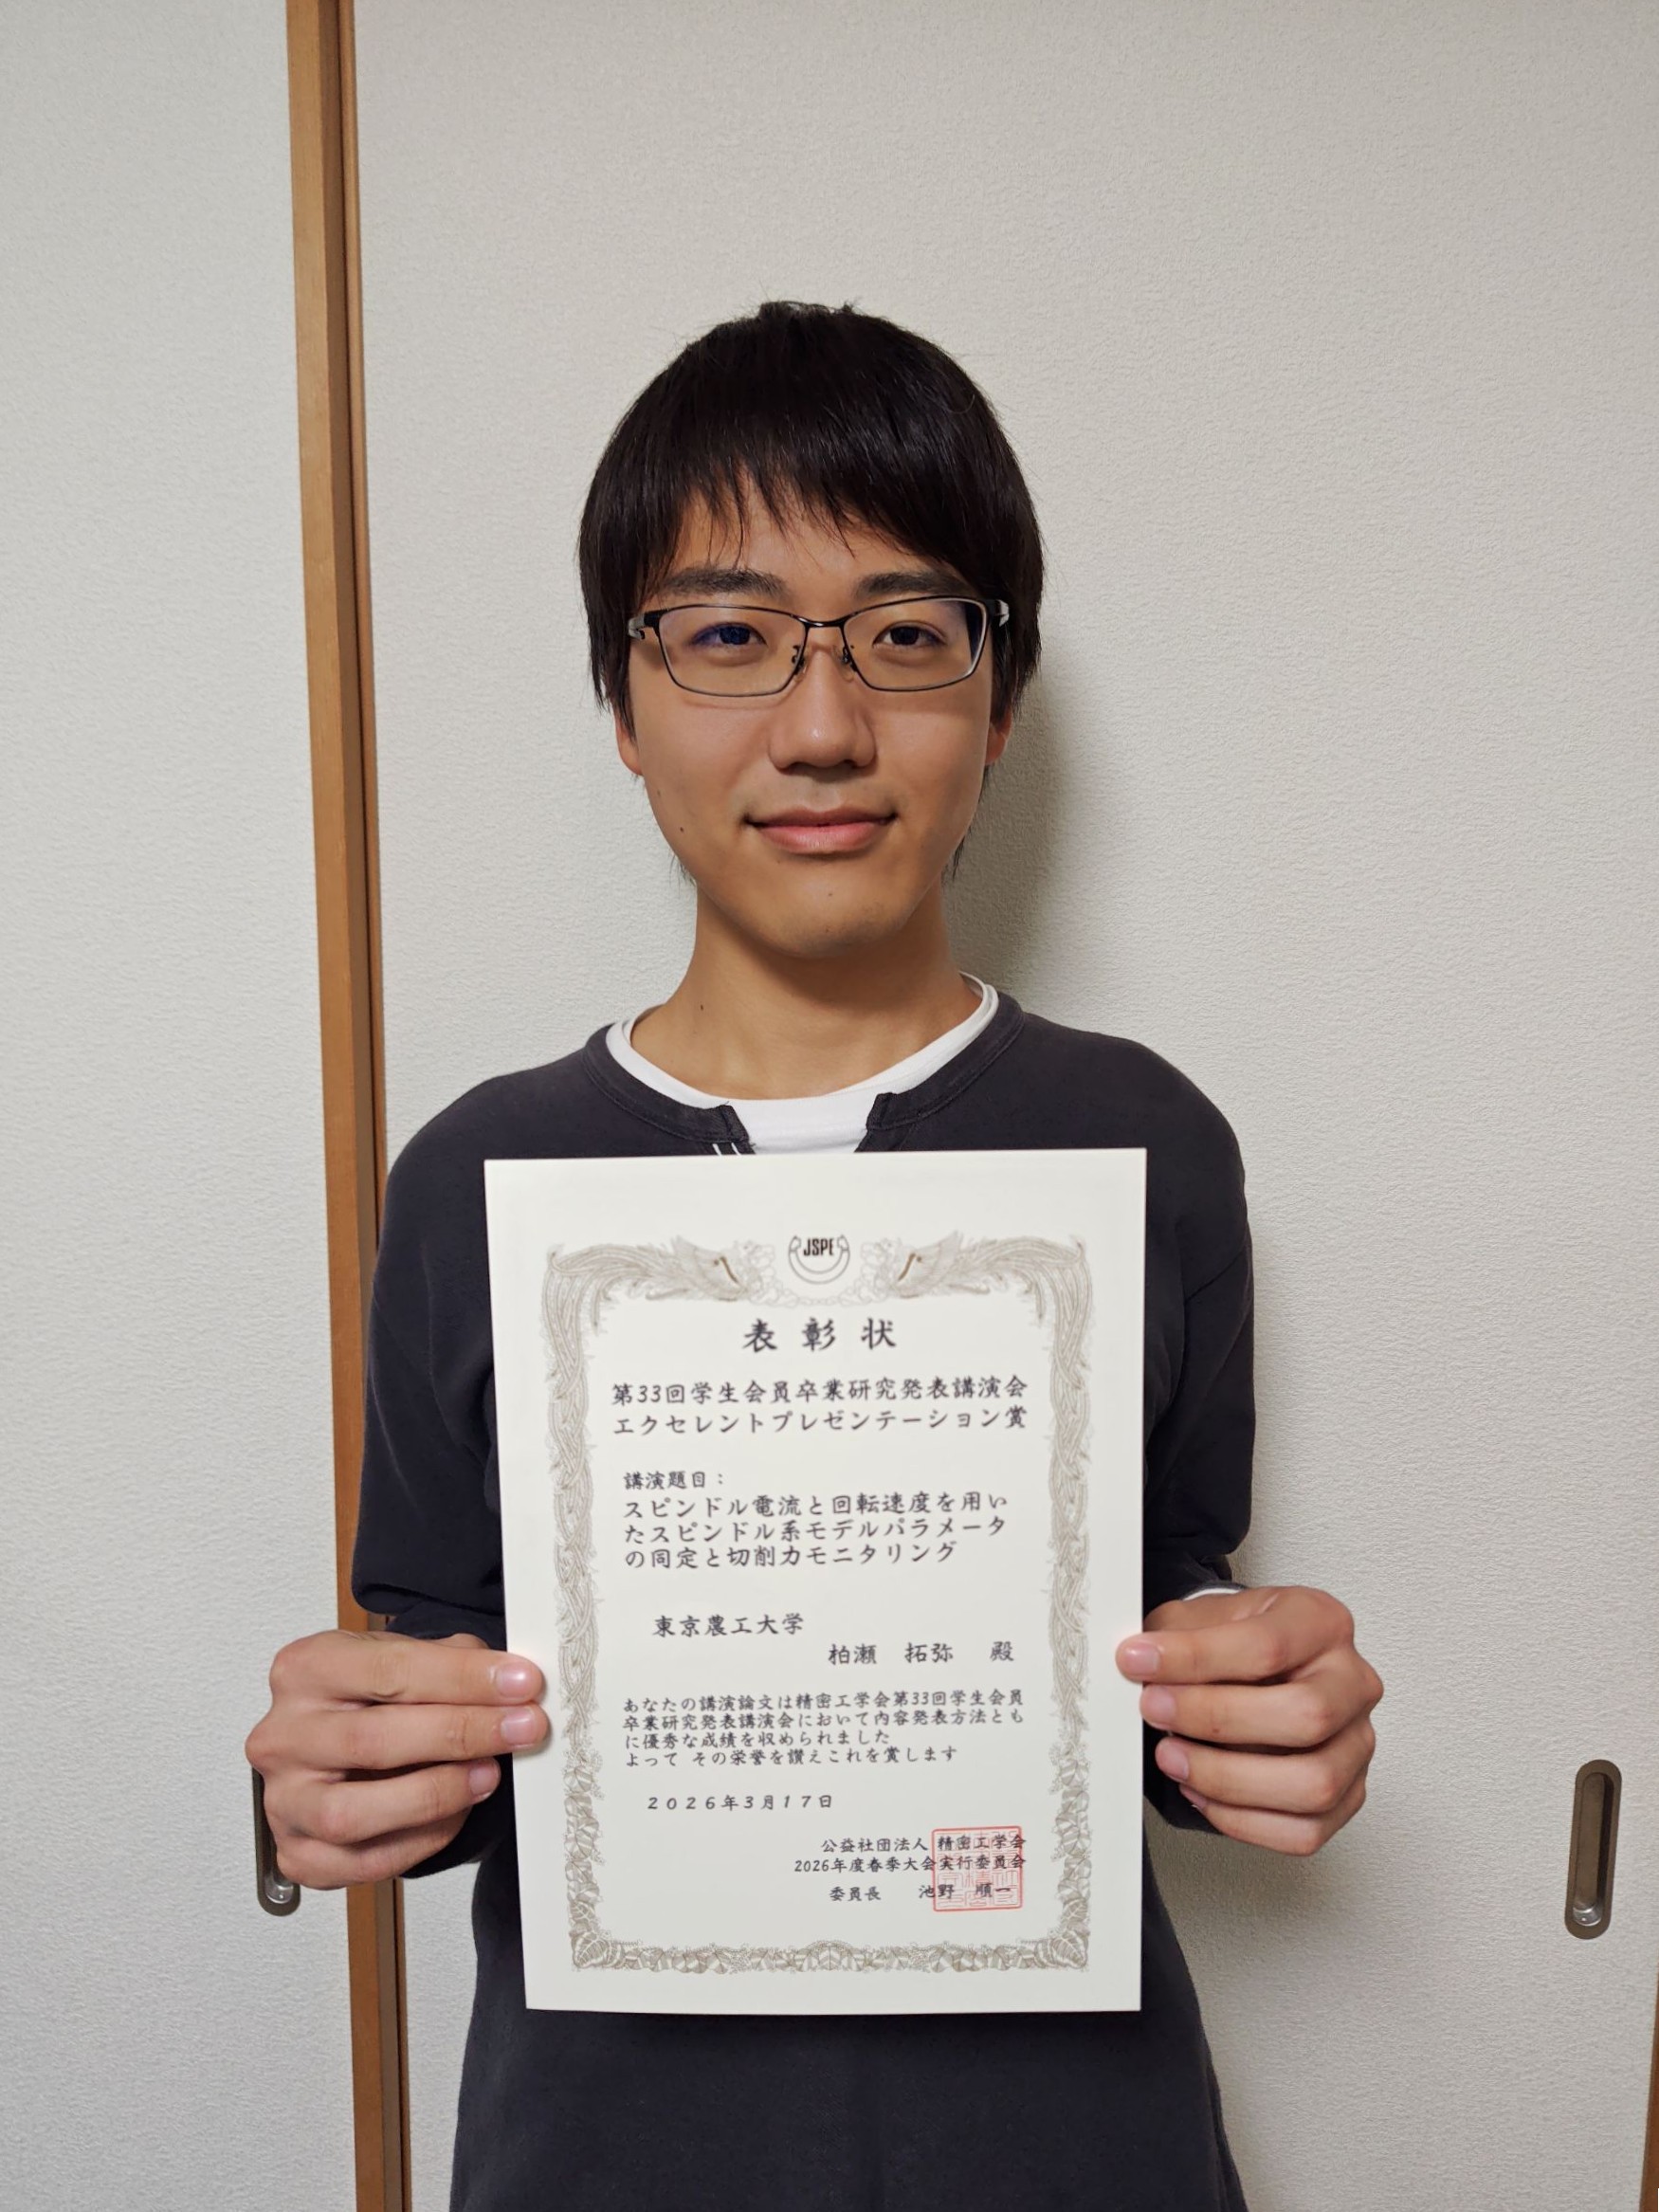 JSPE
表彰状
第33回学生会員卒業研究発表講演会
エクセレントプレゼンテーション賞
講演題目：
スピンドル電流と回転速度を用い
たスピンドル系モデルパラメータ
の同定と切削力モニタリング
東京農工大学
柏瀬 拓弥 殿
あなたの講演論文は精密工学会第33回学生会員
卒業研究発表講演会において内容発表方法とも
に優秀な成績を収められました
よって その栄誉を讃えこれを賞します
2026年3月17日
公益社団法人 精密工学会
2026年度春季大会実行委員会
委員長 池野 順一